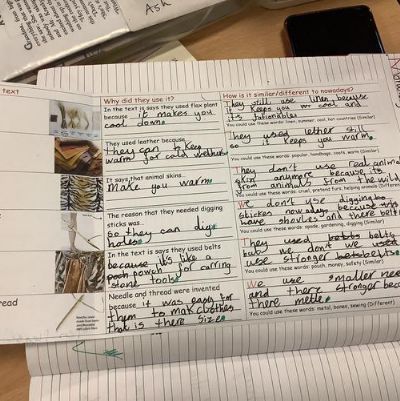 ASK
text
Why did they use it?
How is it similar/different to nowadays?
In the text is says they used flax plant
because it makes you
cool down.
They still use linen because
it keeps you cool and
its fationable
You could use these words: linen, summer, cool, hot countries (Similar)
They used leather because
They can to keep
warm for cold
They used lether still
so it keeps you warm.
You could use these words: popular, handbags, coats, warm (Similar)
It says that animal skins
make you warm.
They don't use real animal
skin anymore because its
from animals from the wild
You could use these words: cruel, pretend furs, helping animals (Different)
The reason that they needed digging
sticks was
So they can dig
holes
We don't use digging
stickes nowadays because
have shovles and there
You could use these words: spade, gardening, digging
In the text is says they used belts
because it's like a
pouch for carring
stone tools
They used belts
but we don't we used
use stronger belts.
You could use these words: pouch, money, safety (Similar)
read
Needle and thread were invented
because it was easy for
them to mak clothes
that is there size.
We use smaller nee
and there stronger bec
there mettle.
You could use these words: metal, bones, sewing (Different)